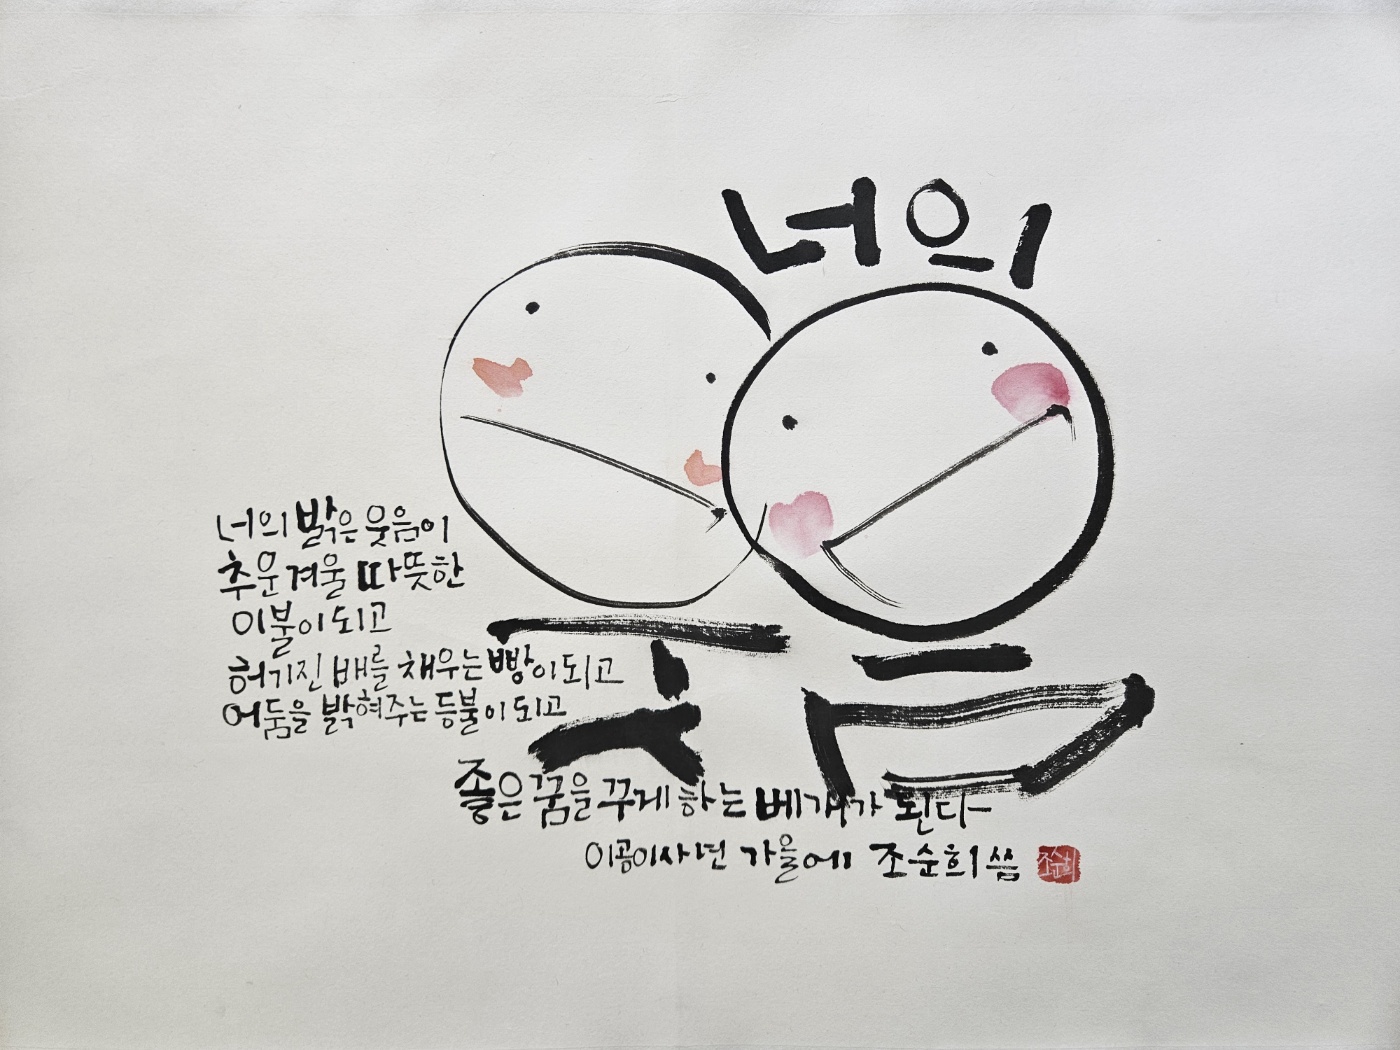 너의
웃음
너의 밝은 웃음이
추운 겨울 따뜻한
이불이 되고
허기진 배를 채우는 빵이 되고
어둠을 밝혀주는 등불이 되고
좋은 꿈을 꾸게 하는 베개가 된다
이공이사년 가을에 조순희 씀
조순희